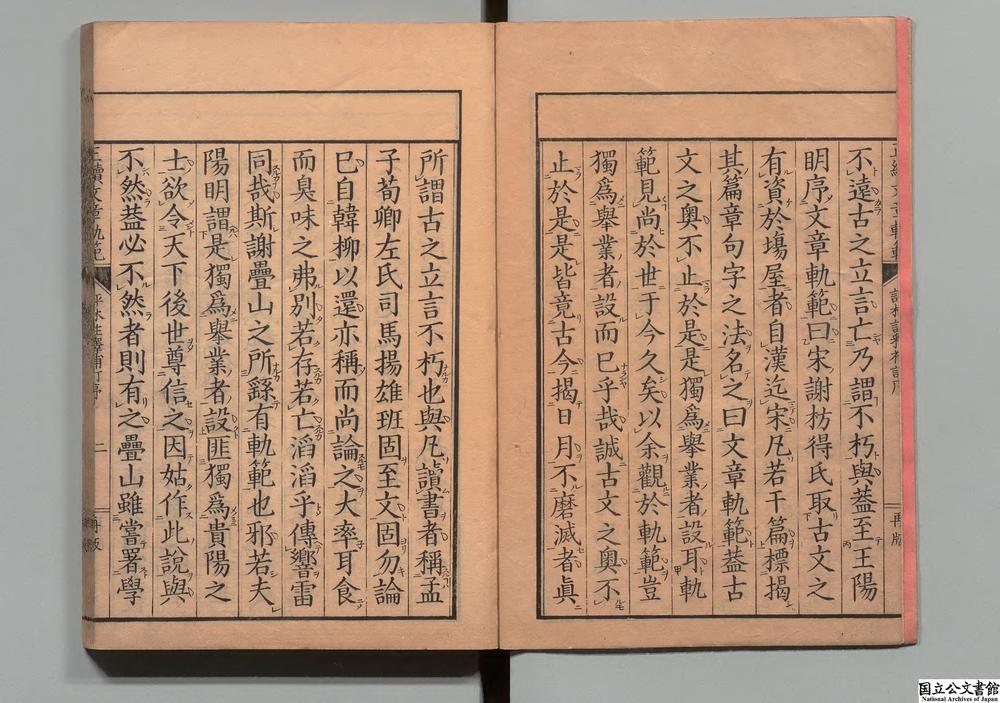 不遠古之立言亡乃謂不朽與葢至王陽
明序文章軌範曰宋謝枋得氏取古文之
有資於塲屋者自漢迄宋凡若干篇標揭
其篇章句字之法名之曰文章軌範葢古
文之奥不止於是是獨爲舉業者設耳軌
範見尚於世于今久矣以余觀於軌範豈
獨爲舉業者設而已乎哉誠古文之奥不
止於是是皆竟古今揭日月不磨滅者眞
再版
所謂古之立言不朽也與凡讀書者稱孟
子荀卿左氏司馬揚雄班固至文固勿論
已自韓柳以還亦稱而尚論之大率耳食
而臭味之弗別若存若亡滔滔乎傳響雷
同哉斯謝疊山之所繇有軌範也邪若夫
陽明謂是獨爲舉業者設匪獨爲貴陽之
士欲令天下後世尊信之因姑作此説與
不然葢必不然者則有之疊山雖嘗署學
二
再版
国立公文書館
National Archives of Japan